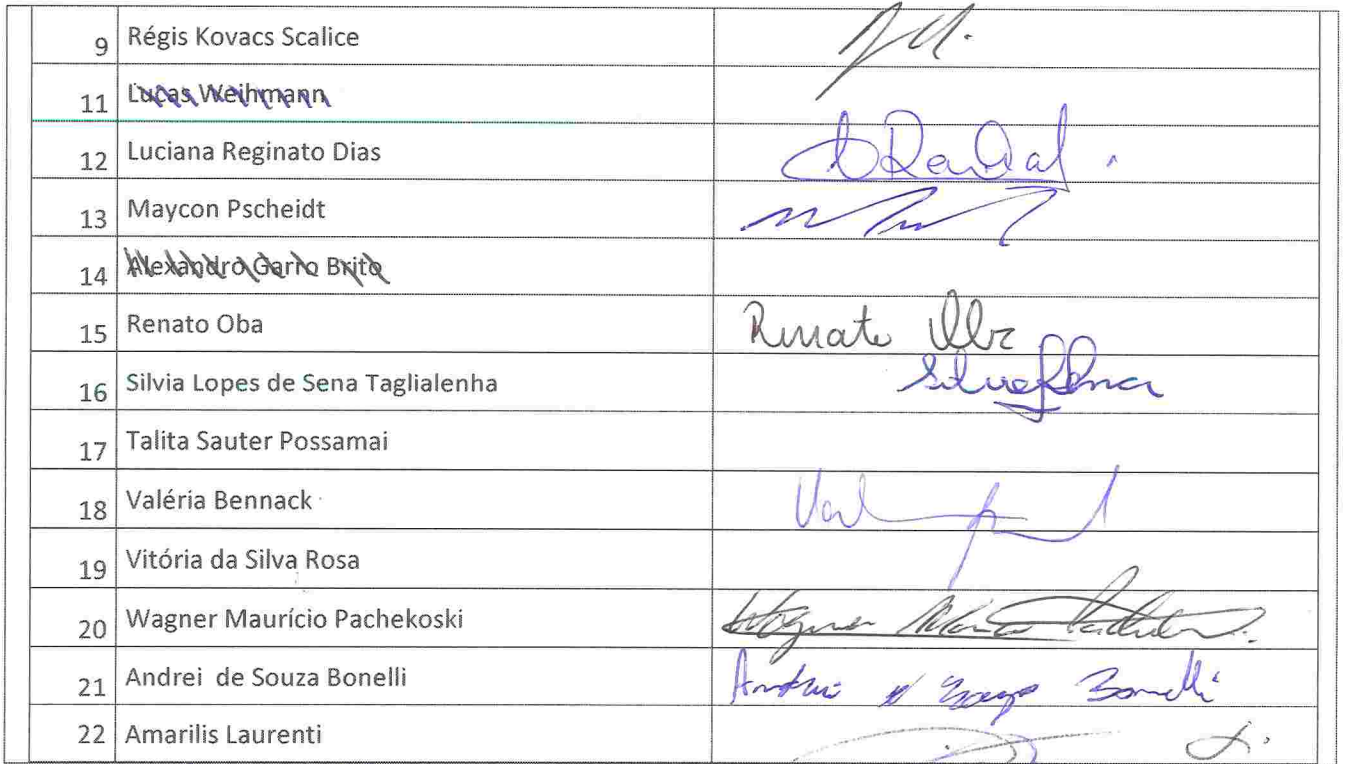 9 Régis Kovacs Scalice
11 Lucas Weihmann
12 Luciana Reginato Dias
13 Maycon Pscheidt
14 Alexandro Garro Brito
15 Renato Oba Renato Oba
16 Silvia Lopes de Sena Taglialenha
17 Talita Sauter Possamai
18 Valéria Bennack
19 Vitória da Silva Rosa
20 Wagner Maurício Pachekoski Wagner
21 Andrei de Souza Bonelli Andrei d Souza Bonelli
22 Amarilis Laurenti